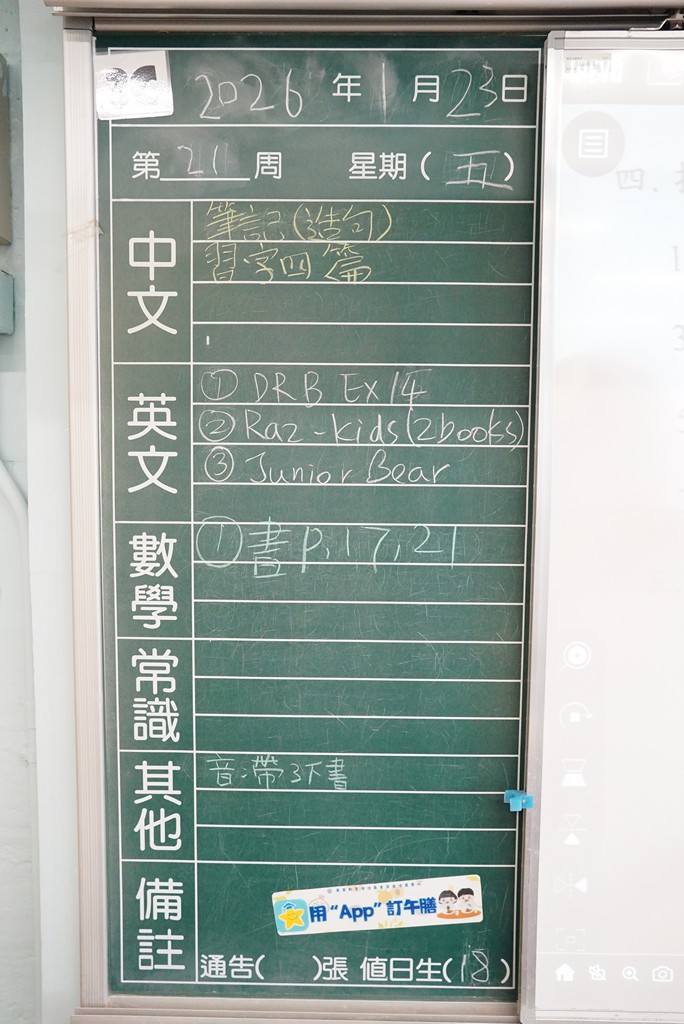 2026年1月23日
第21周 星期(五)
中文
筆記(造句)
習字四篇
英文
① DRB Ex14
② Raz-kids(2books)
③ Junior Bear
數學
① 書P.17,21
常識
其他
音:帶3下書
備註
用“App”訂午膳
通告( )張 值日生(18)
四.